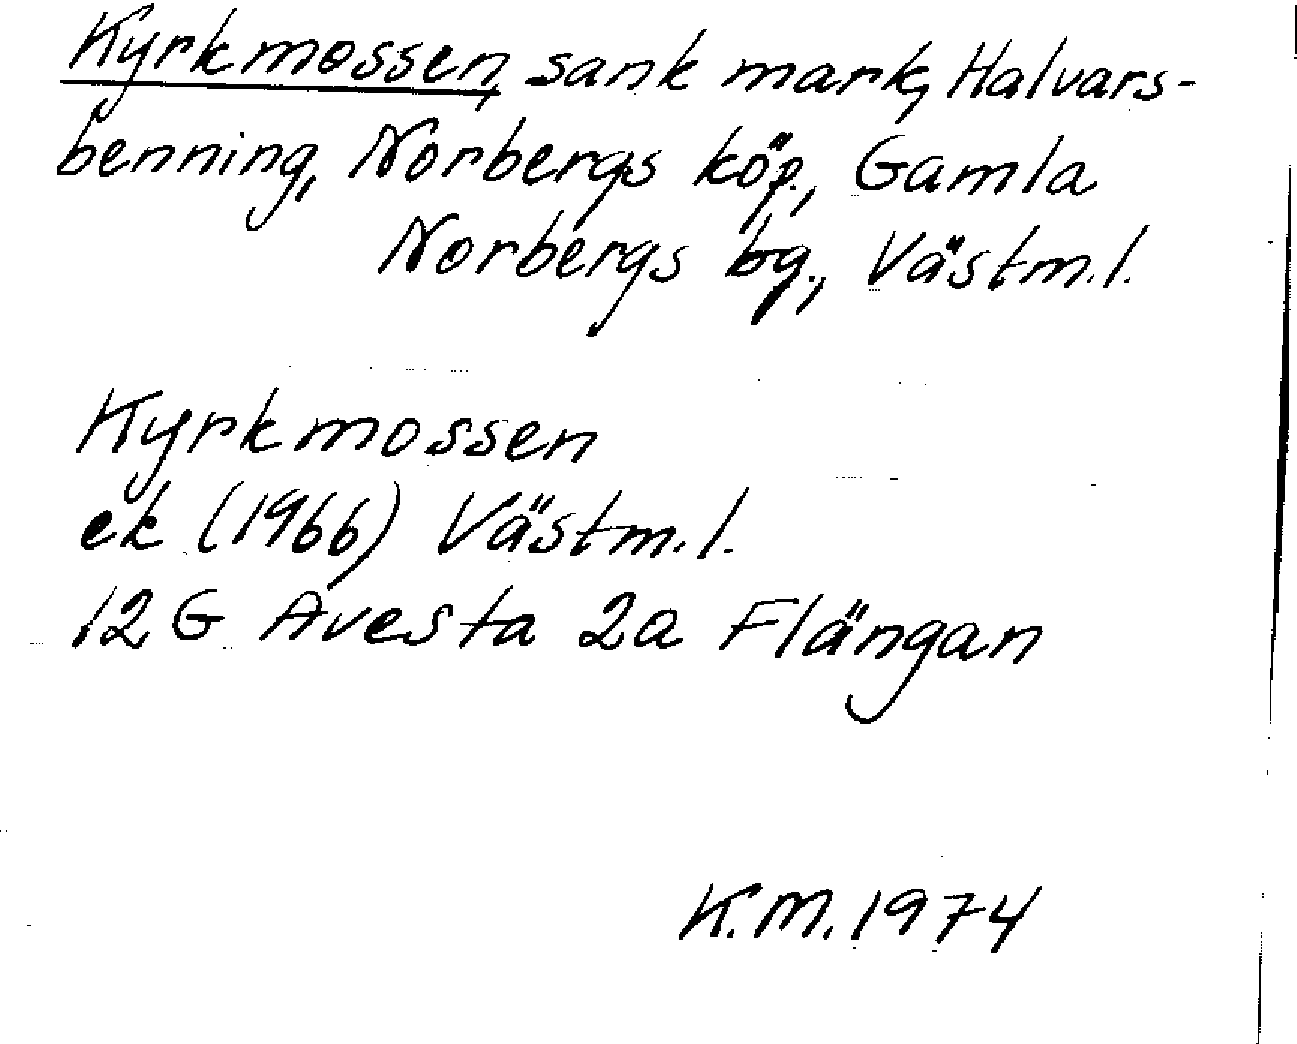 Kyrkmossen, sank mark, Halvars-
benning, Norbergs köp., Gamla
Norbergs bg., Västm.l.
Kyrkmossen
ek (1966) Västm.l.
12 G Avesta 2a Flängan
K.M. 1974